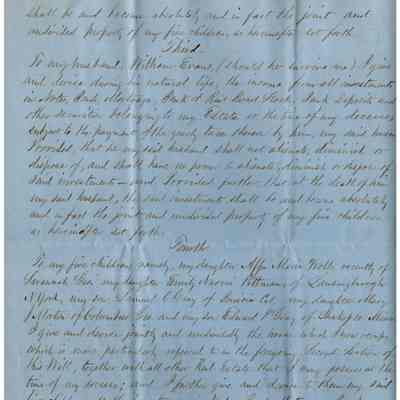 shall be and become absolutely and in fact the joint and
undivided property of my five children, as hereinafter set forth
Third
To my husband, William Evans, (should he survive me) I give
and devise during his natural life, the income from all investments
in Notes, Bonds, Mortgage, Bank & Rail Road Stock, Bank Deposits and
other securities belonging to my Estate at the time of my decease
subject to the payment of the yearly taxes thereon by him, my said husband
Provided that he my said husband shall not alienate, diminish or
dispose of, and shall have no power to alienate, diminish or dispose of
said investments — and Provided further, that at the death of him
my said husband, the said investments shall be and become absolutely
and in fact the joint and undivided property of my five children
as hereinafter set forth.
Fourth
To my five children namely, my daughter Maria Wolfe recently of
Savannah Geo my daughter Emily Naomi Pitman of
N. York, my son Samuel C Gray of my daughter Mary
J Martin of Columbus Geo and my son Edward P Gray, of
I give and devise jointly and undividedly the house which I now occupy
which is more particularly referred to in the foregoing Second Section of
this Will, together with all other Real Estate that I may possess at the
time of my decease; and I further give and devise to them my said